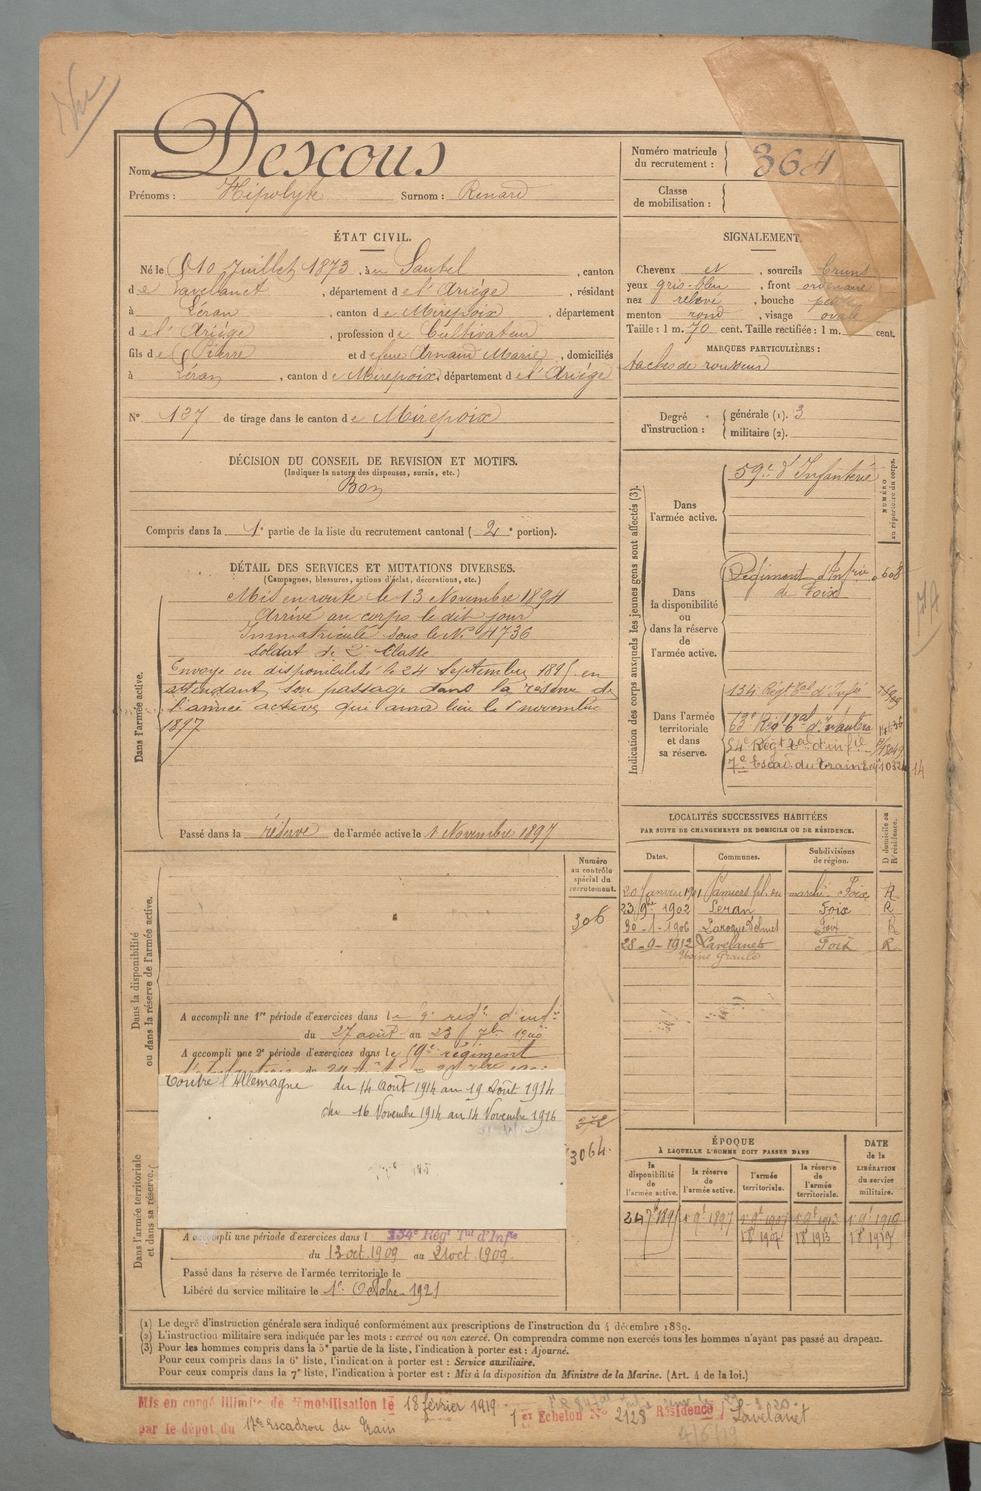 Vu
Nom : Descous
Prénoms : Hipolyte Surnom : Renard
Numéro matricule du recrutement : 364
Classe de mobilisation :
ÉTAT CIVIL.
Né le 10 Juillet 1873, à Sautel, canton
de Lavelanet, département de l'Ariège, résidant
à Léran, canton de Mirepoix, département
de l'Ariège, profession de Cultivateur
fils de Pierre et de feue Arnaud Marie, domiciliés
à Léran, canton de Mirepoix, département de l'Ariège
N° 137 de tirage dans le canton de Mirepoix
SIGNALEMENT.
Cheveux et, sourcils bruns
yeux gris-bleu, front ordinaire
nez relevé, bouche petite
menton rond, visage ovale
Taille : 1 m. 70 cent. Taille rectifiée : 1 m. cent.
MARQUES PARTICULIÈRES :
taches de rousseur
Degré d'instruction : générale (1). 3
militaire (2).
DÉCISION DU CONSEIL DE REVISION ET MOTIFS.
(Indiquer la nature des dispenses, sursis, etc.)
Bon
Compris dans la 1e partie de la liste du recrutement cantonal (2e portion).
DÉTAIL DES SERVICES ET MUTATIONS DIVERSES.
(Campagnes, blessures, actions d'éclat, décorations, etc.)
Dans l'armée active.
Mis en route le 13 Novembre 1894
Arrivé au corps le dit jour
Immatriculé sous le N° 4736
soldat de 2e Classe
Envoyé en disponibilité le 24 Septembre 1895 en
attendant son passage dans la réserve de
l'armée active qui aura lieu le 1 novembre
1897
Passé dans la réserve de l'armée active le 1 Novembre 1897
Indication des corps auxquels les jeunes gens sont affectés (3).
NUMÉRO au répertoire du corps.
Dans l'armée active.
59e d'Infanterie
Dans la disponibilité ou dans la réserve de l'armée active.
Régiment d'Infrie
de Foix
Dans l'armée territoriale et dans sa réserve.
134 Régt Tal d'Infie
63e Rég
54e Régt Tal d'infie
7e Escad. du Train
LOCALITÉS SUCCESSIVES HABITÉES
PAR SUITE DE CHANGEMENTS DE DOMICILE OU DE RÉSIDENCE.
Dates. Communes. Subdivisions de région. D domicile ou R résidence.
20 Janvier 1901 Pamiers Foix R
23 9bre 1902 Leran Foix R
30-1-1906 Laroque d'olmes Foix R
28-9-1912 Lavelanet Foix R
Usine
Dans la disponibilité ou dans la réserve de l'armée active.
Numéro au contrôle spécial du recrutement.
306
A accompli une 1re période d'exercices dans le régt d'inf
du 27 août au 23 7bre 1900
A accompli une 2e période d'exercices dans le 59e régiment
Contre l'Allemagne du 14 Aout 1914 au 19 Août 1914
du 16 Novembre 1914 au 14 Novembre 1916
372
3064.
Dans l'armée territoriale et dans sa réserve.
A accompli une période d'exercices dans l 134e Régt Tal d'Infie
du 13 oct. 1909 au 21 oct. 1909
Passé dans la réserve de l'armée territoriale le
Libéré du service militaire le 1e Octobre 1921
ÉPOQUE
À LAQUELLE L'HOMME DOIT PASSER DANS
la disponibilité de l'armée active. la réserve de l'armée active. l'armée territoriale. la réserve de l'armée territoriale.
DATE de la LIBÉRATION du service militaire.
24 7bre 1895 1 9e 1897 1 9e 1907 1 9e 1913 1 9e 1919
1 8e 1907 1 8e 1913 1 8e 1919
(1) Le degré d'instruction générale sera indiqué conformément aux prescriptions de l'instruction du 4 décembre 1889.
(2) L'instruction militaire sera indiquée par les mots : exercé ou non exercé. On comprendra comme non exercés tous les hommes n'ayant pas passé au drapeau.
(3) Pour les hommes compris dans la 5e partie de la liste, l'indication à porter est : Ajourné.
Pour ceux compris dans la 6e liste, l'indication à porter est : Service auxiliaire.
Pour ceux compris dans la 7e liste, l'indication à porter est : Mis à la disposition du Ministre de la Marine. (Art. 4 de la loi.)
Mis en congé illimité de démobilisation le 18 février 1919
1er Echelon N° 2128 Résidence Lavelanet
par le dépôt du 17e Escadron du Train